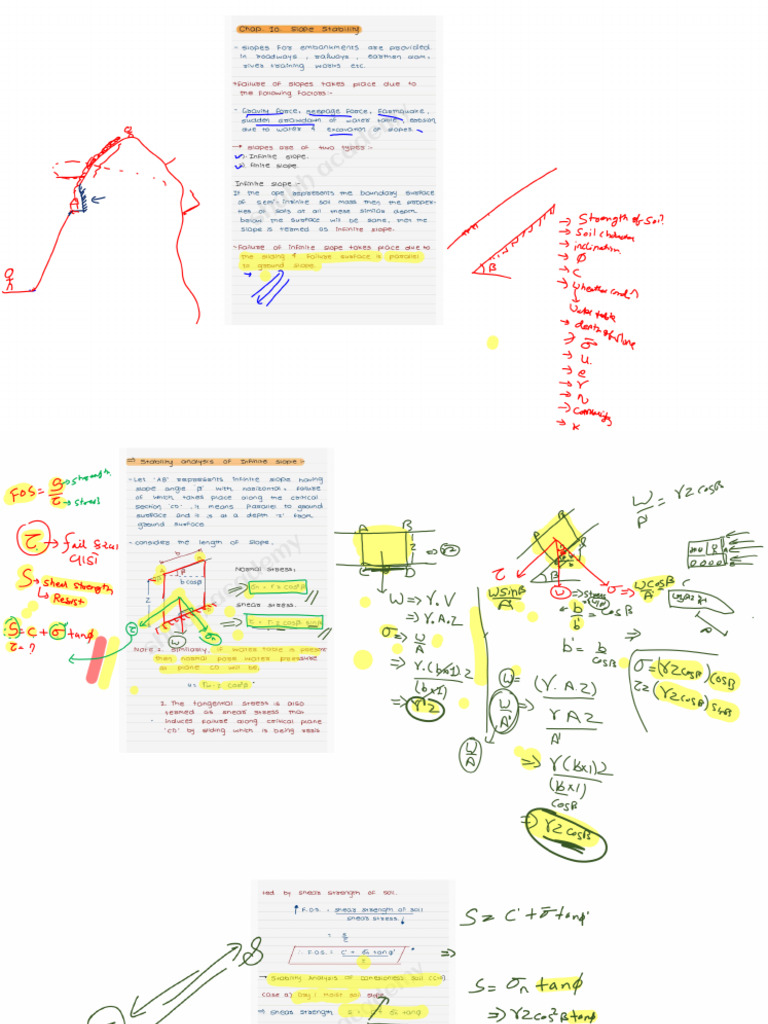 Chap. 10. Slope Stability
- Slopes for embankments are provided
in roadways, railways, earthen dam,
river training works etc.
* Failure of slopes takes place due to
the following factors:-
- Gravity force, seepage force, Earthquake,
sudden drawdown of water table, erosion
due to water & excavation of slopes.
→ slopes are of two types:-
Infinite slope.
finite slope.
Infinite slope:-
If the
represents the boundary surface
of semi infinite soil mass then the proper-
ties of soils at all these similar depth
below the surface will be same, then the
slope is termed as infinite slope.
- Failure of infinite slope takes place due to
the sliding & failure surface is parallel
to ground slope.
β
→ Strength of soil?
→ soil
→ inclination
→ Ø
→ C
→ Wheather
Water table
→
→ σ̄
→ u.
→ e
→ γ
→
→
→ k
⇒ Stability analysis of Infinite slope:-
- Let 'AB' represents infinite slope having
slope angle 'β' with horizontal. Failure
of which takes place along the critical
section 'CD', it means parallel to ground
surface and it is at a depth 'z' from
ground surface.
- consider the length of slope.
b
β
b cosβ
z
Normal stress:
σn = γz cos²β
shear stress:
τ = γz cosβ sinβ
τ
W
σn
Note 1. Similarly, if water table is present
then normal pore water pressure
to plane CD will be,
u = γw·z cos²β
2. The tangential stress is also
termed as shear stress that
induces failure along critical plane
'CD' by sliding which is being resis
FOS = S → strength
τ → stress
τ → fail
S → shear strength
↳ Resist
S = C + σ tanφ
τ = ?
A B
z
C D
γz
W ⇒ γ.V
⇒ γ.A.z
σ ⇒ W
A
⇒ γ.(b×1)z
(b×1)
⇒ γ·z
W = γz cosβ
A'
A B
τ
W sinβ
A'
β
W
⇒ stress
σ ⇒ W cosβ
A'
b = cosβ
b'
b' = b
cosβ
⇒
W =
W
A'
W
A
(γ.A.z)
γ A z
A'
⇒ γ(b×1)z
(b×1)
cosβ
⇒ γz cosβ
σ = (γz cosβ) cosβ
τ = (γz cosβ) sinβ
ted by shear strength of soil.
↑ F.O.S. = shear strength of soil
shear stress ↓
= S
τ
∴ F.O.S. = C' + σ̄n tanφ'
τ
⇒
→ Stability Analysis of cohesionless soil (C=0)
(case a) Dry / moist soil slope
⇒ shear strength
S
S = C' + σ̄ tanφ'
S = σn tanφ
⇒ γz cos²β tanφ